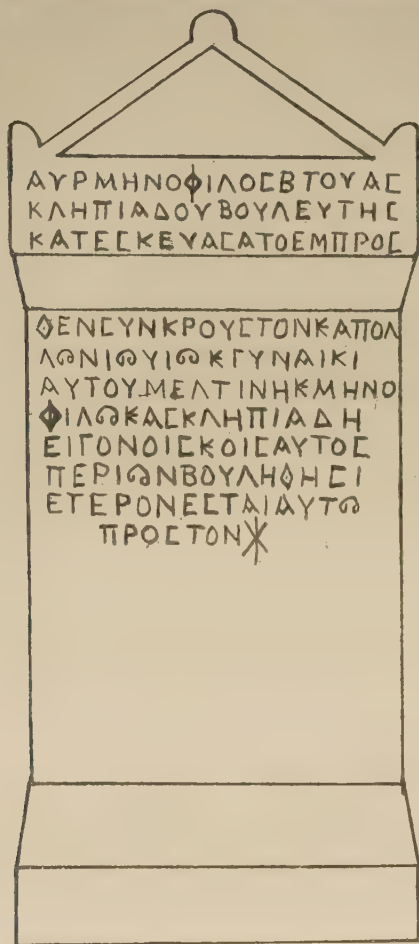 ΑΥΡΜΗΝΟΦΙΛΟϹΒΤΟΥΑϹ
ΚΛΗΠΙΑΔΟΥΒΟΥΛΕΥΤΗϹ
ΚΑΤΕϹΚΕΥΑϹΑΤΟΕΜΠΡΟϹ
ΘΕΝϹΥΝΚΡΟΥϹΤΟΝΚΑΠΟΛ
ΛΩΝΙΩΥΙΩΚΓΥΝΑΙΚΙ
ΑΥΤΟΥΜΕΛΤΙΝΗΚΜΗΝΟ
ΦΙΛΩΚΑϹΚΛΗΠΙΑΔΗ
ΕΙΓΟΝΟΙϹΚΟΙϹΑΥΤΟϹ
ΠΕΡΙΩΝΒΟΥΛΗΘΗϹΙ
ΕΤΕΡΟΝΕϹΤΑΙΑΥΤΩ
ΠΡΟϹΤΟΝ⳩